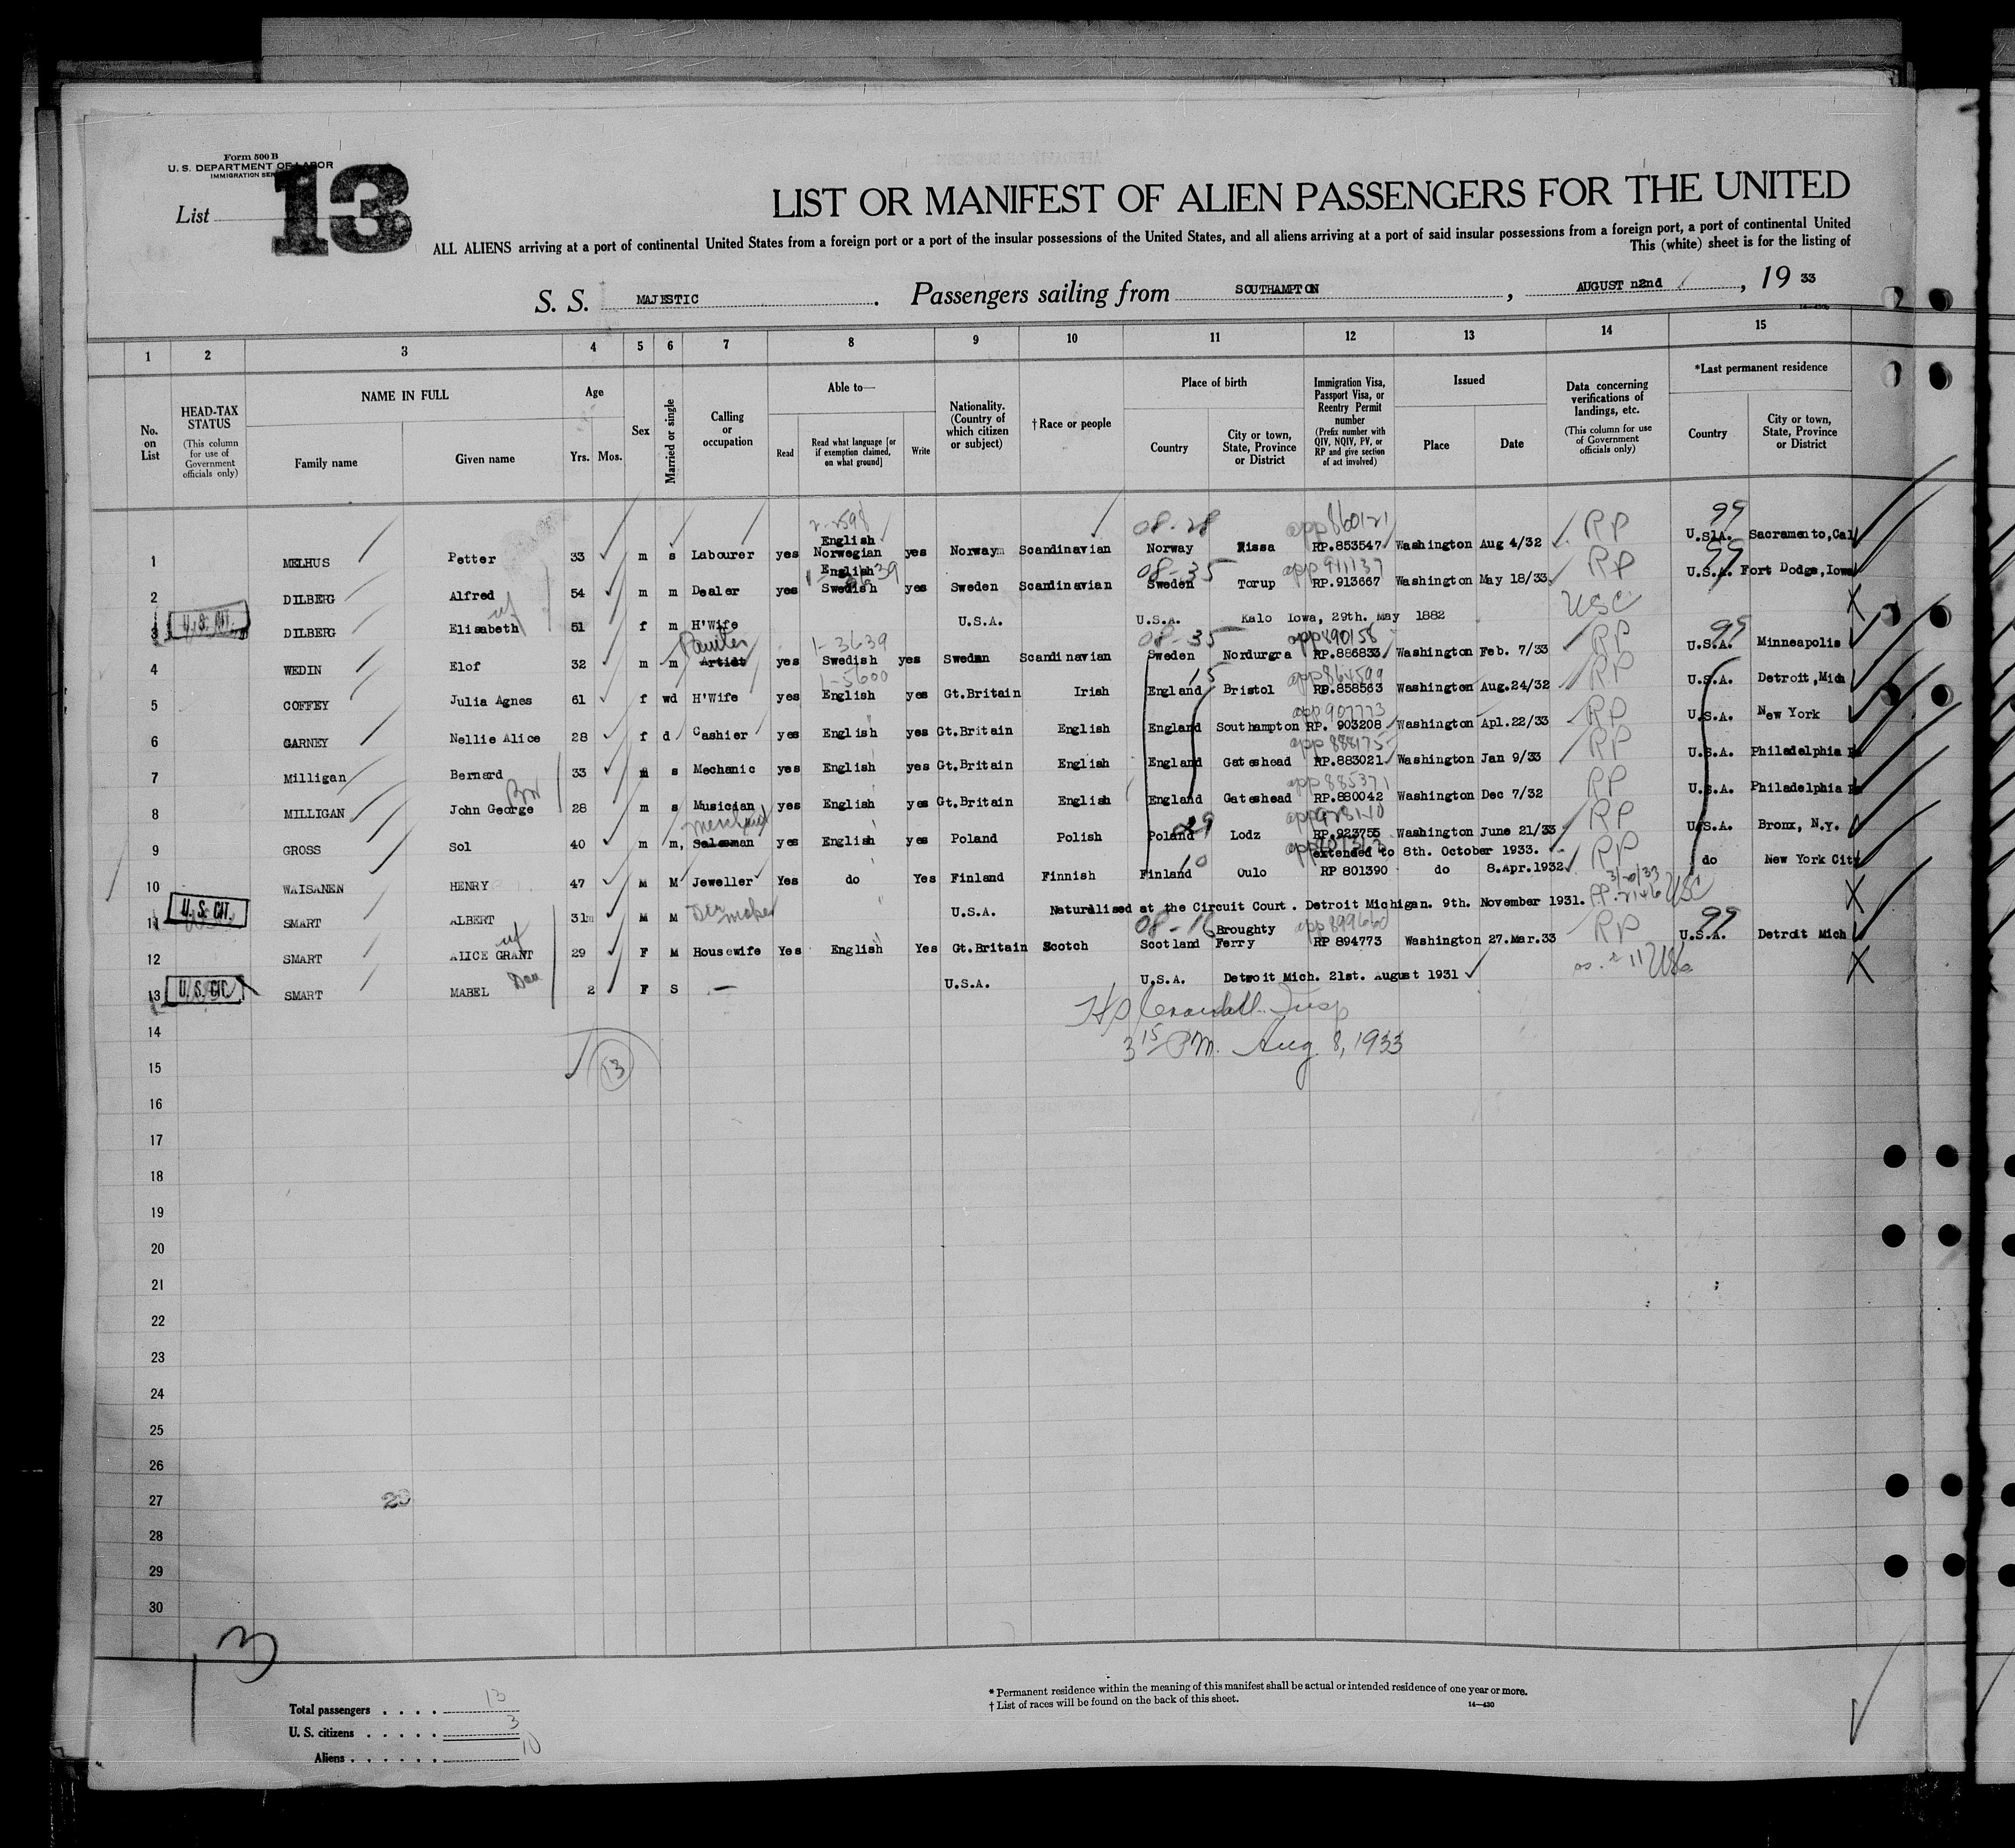 Form 500 B
U. S. DEPARTMENT OF LABOR
IMMIGRATION SER
List 13
LIST OR MANIFEST OF ALIEN PASSENGERS FOR THE UNITED
ALL ALIENS arriving at a port of continental United States from a foreign port or a port of the insular possessions of the United States, and all aliens arriving at a port of said insular possessions from a foreign port, a port of continental United
This (white) sheet is for the listing of
S. S. MAJESTIC . Passengers sailing from SOUTHAMPTON , AUGUST n2nd , 19 33
1 2 3 4 5 6 7 8 9 10 11 12 13 14 15
No. on List
HEAD-TAX STATUS (This column for use of Government officials only)
NAME IN FULL
Family name Given name
Age Yrs. Mos.
Sex
Married or single
Calling or occupation
Able to—
Read Read what language [or if exemption claimed, on what ground] Write
Nationality. (Country of which citizen or subject)
† Race or people
Place of birth
Country City or town, State, Province or District
Immigration Visa, Passport Visa, or Reentry Permit number (Prefix number with QIV, NQIV, PV, or RP and give section of act involved)
Issued
Place Date
Data concerning verifications of landings, etc. (This column for use of Government officials only)
*Last permanent residence
Country City or town, State, Province or District
2-2598 08-28 app 860121 99
English
1 MELHUS Petter 33 m s Labourer yes Norwegian yes Norwaym Scandinavian Norway Rissa RP.853547 Washington Aug 4/32 RP U.S.A. Sacramento,Cal
English 08-35 app 911137 99
2 DILBERG Alfred 54 m m Dealer yes Swedish yes Sweden Scandinavian Sweden Torup RP.913667 Washington May 18/33 RP U.S.A. Fort Dodge,Iowa
U.S. CIT. wf
3 DILBERG Elisabeth 51 f m H'Wife U.S.A. U.S.A. Kalo Iowa, 29th. May 1882 USC
Painter 1-3639 08-35 app 890158 99
4 WEDIN Elof 32 m m Artist yes Swedish yes Swedmn Scandinavian Sweden Nordurgra RP.886833 Washington Feb. 7/33 RP U.S.A. Minneapolis
1-5600 15 app 864599
5 COFFEY Julia Agnes 61 f wd H'Wife yes English yes Gt.Britain Irish England Bristol RP.858563 Washington Aug.24/32 RP U.S.A. Detroit,Mich
app 907773
6 GARNEY Nellie Alice 28 f d Cashier yes English yes Gt.Britain English England Southampton RP. 903208 Washington Apl.22/33 RP U.S.A. New York
app 888175
7 Milligan Bernard 33 m s Mechanic yes English yes Gt.Britain English England Gateshead RP.883021 Washington Jan 9/33 RP U.S.A. Philadelphia
Bro app 885371
8 MILLIGAN John George 28 m s Musician yes English yes Gt.Britain English England Gateshead RP.880042 Washington Dec 7/32 RP U.S.A. Philadelphia
Merchant 29
9 GROSS Sol 40 m m, Salesman yes English yes Poland Polish Poland Lodz RP.923755 Washington June 21/33 RP U.S.A. Bronx, N.Y.
extended to 8th. October 1933.
10
10 WAISANEN HENRY 47 M M Jeweller Yes do Yes Finland Finnish Finland Oulo RP 801390 do 8.Apr.1932 RP do New York City
U.S. CIT. Die maker 3/20/33
11 SMART ALBERT 31m M M U.S.A. Naturalised at the Circuit Court . Detroit Michigan. 9th. November 1931. USC
wf 08-16 Broughty app 899660 99
12 SMART ALICE GRANT 29 F M Housewife Yes English Yes Gt.Britain Scotch Scotland Ferry RP 894773 Washington 27.Mar.33 RP U.S.A. Detroit Mich
U.S. CIT. Dau
13 SMART MABEL 2 F S — U.S.A. U.S.A. Detroit Mich. 21st. August 1931
Insp
3 15 PM. Aug 8, 1933
13
14
15
16
17
18
19
20
21
22
23
24
25
26
27
28
29
30
13
Total passengers . . . . 13
U. S. citizens . . . . . 3
Aliens . . . . . . 10
* Permanent residence within the meaning of this manifest shall be actual or intended residence of one year or more.
† List of races will be found on the back of this sheet. 14—430